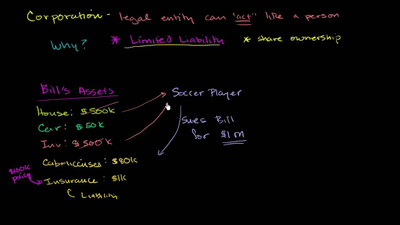 Corporation - legal entity can "act" like a person
Why? * Limited Liability * share ownership
Bill's Assets
House: $500k
Car: $50k
Inv: $500k
Cab licenses: $80k
Insurance: $1k
Liability
$100k policy
Soccer Player
Sues Bill
for $1M